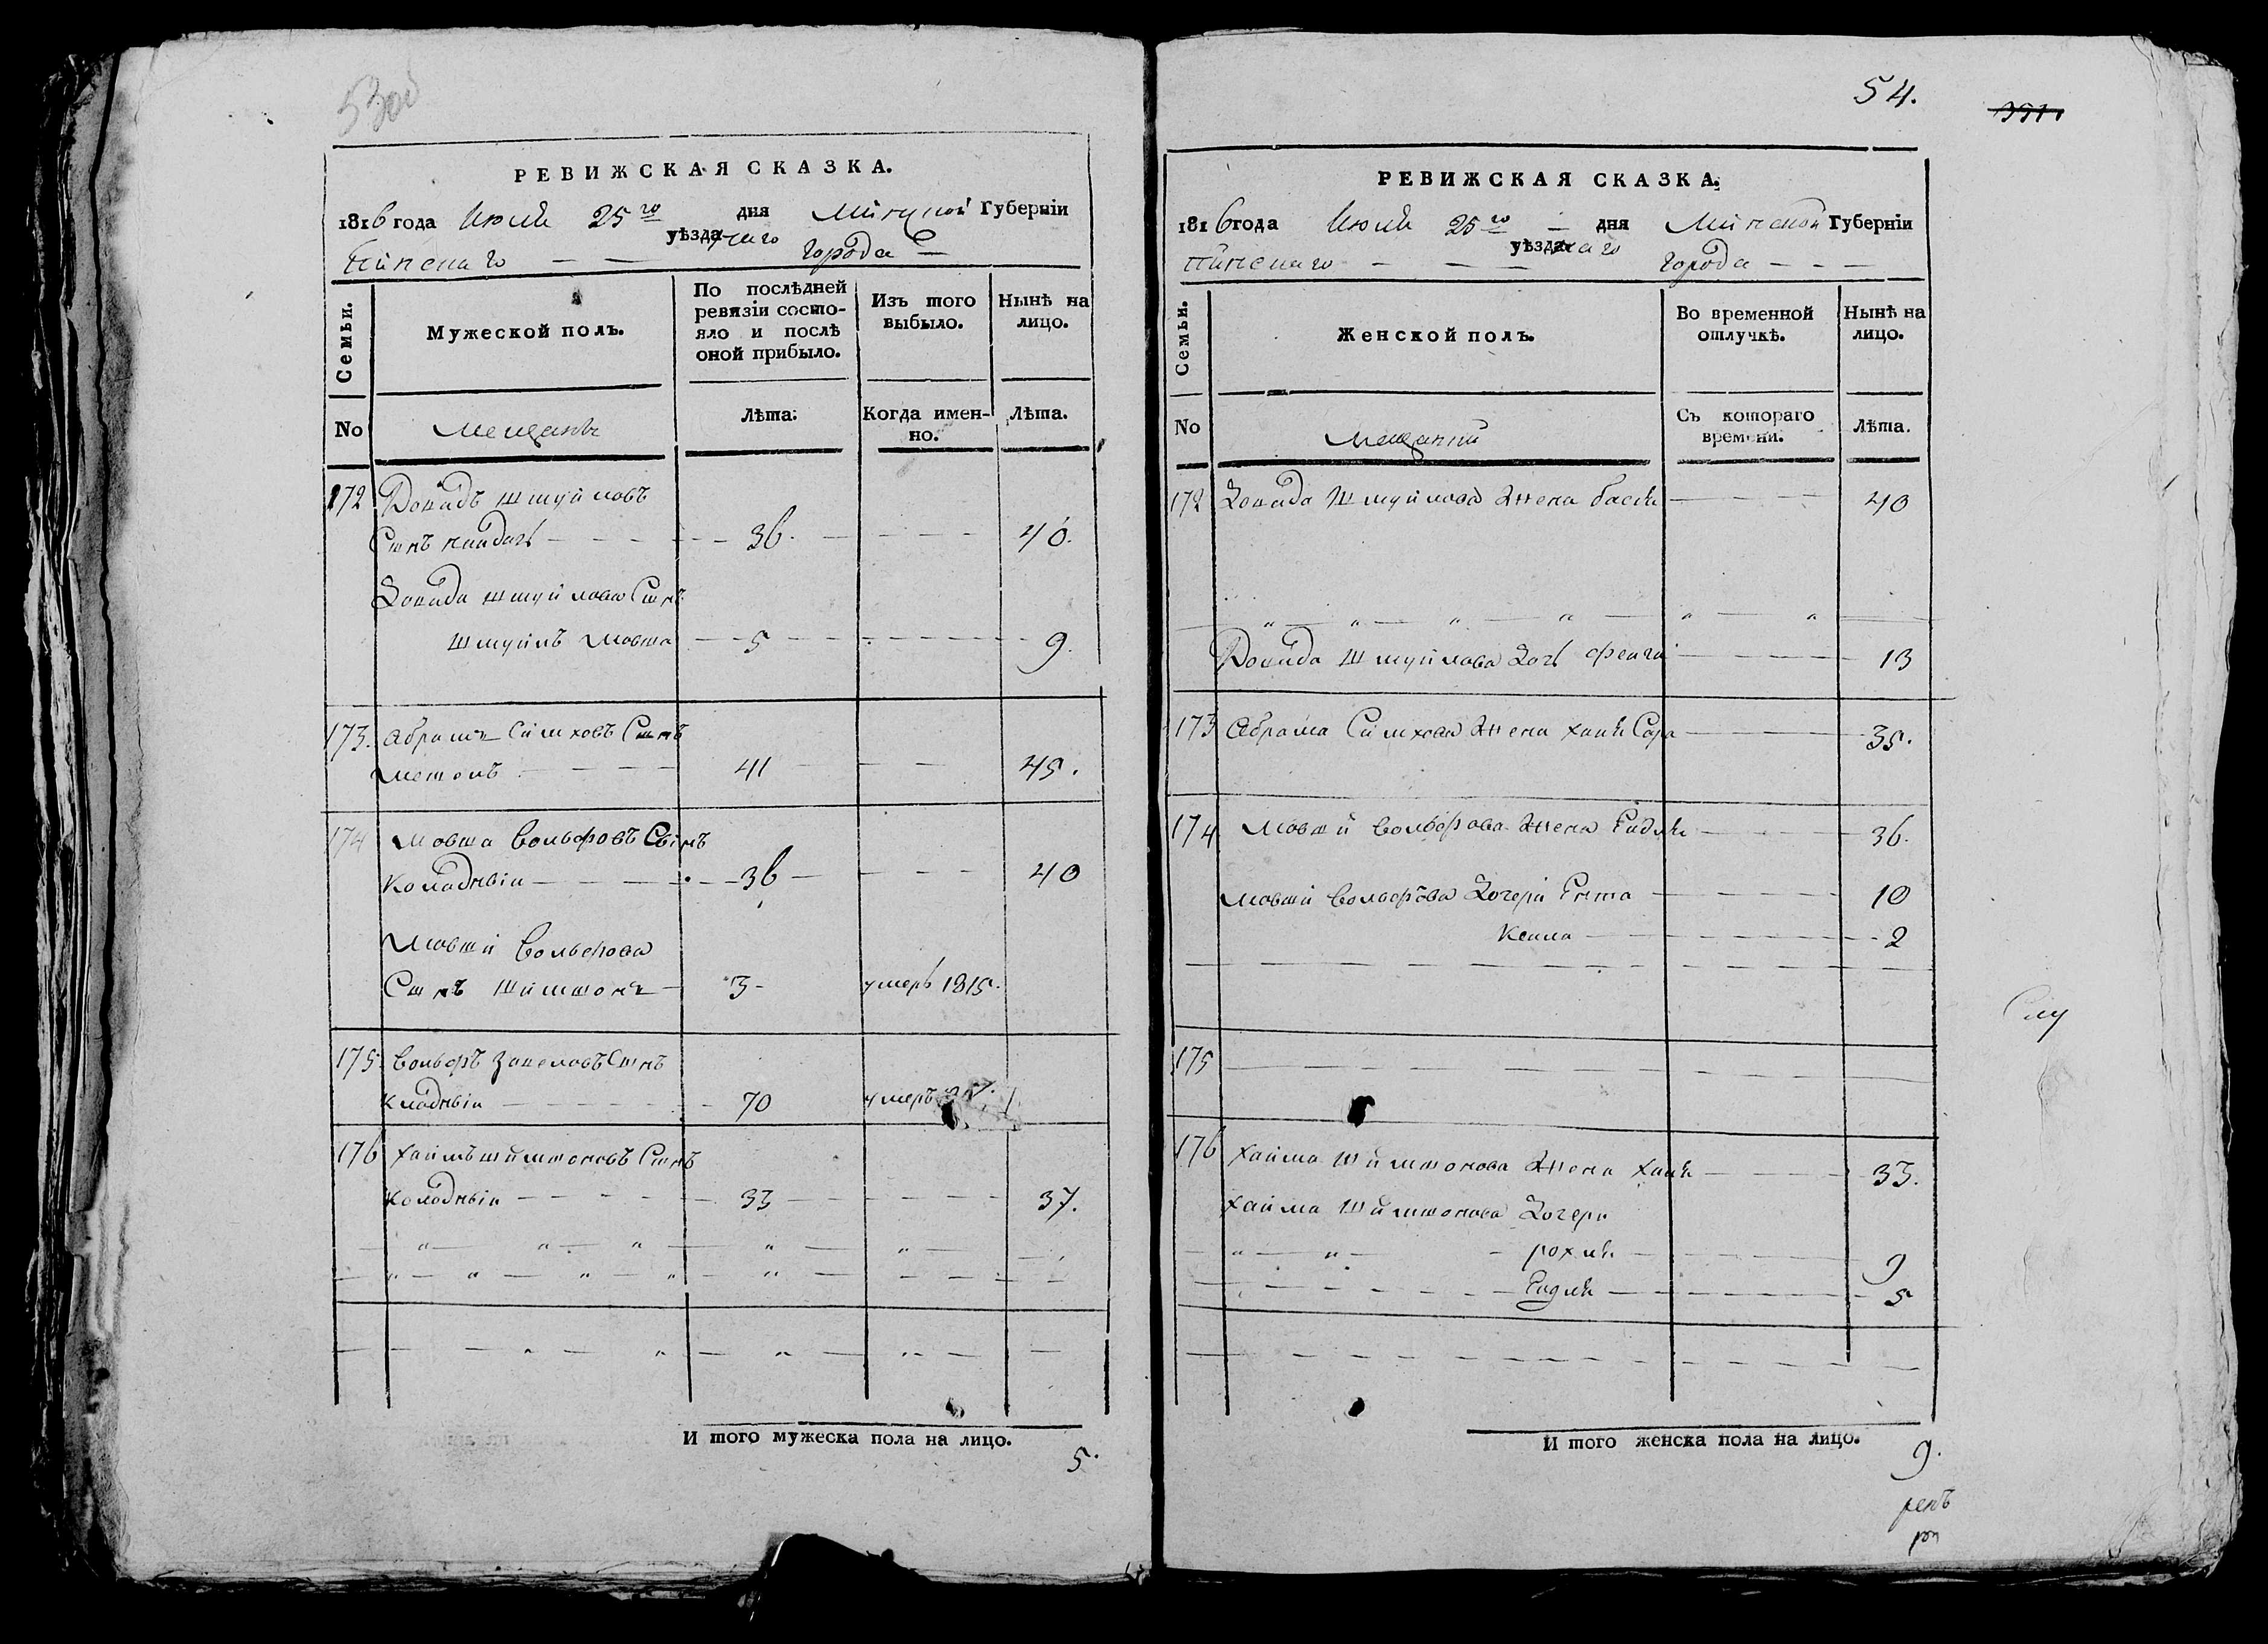 53об
РЕВИЖСКАЯ СКАЗКА.
1816 года Июля 25го дня Минской Губерніи
уѣзда
Пинскаго — — города —
Семьи.
Мужеской полъ.
По послѣдней ревизіи состояло и послѣ оной прибыло.
Изъ того выбыло.
Нынѣ на лицо.
No
Мещанъ
Лѣта.
Когда именно.
Лѣта.
172 Довидъ Шмуйловъ
Сынъ — — — 36. — — — 40.
Довида Шмуйлова Сынъ
Шмуйлъ Мовша — 5 — — — 9.
173. Абрамъ Симховъ Сынъ
— — — 41 — — — 45.
174 Мовша Вольфовъ Сынъ
Колодный — — — 36 — — — 40
Мовши Вольфова
Сынъ Шимшонъ — 3 — умеръ 1815.
175. Вольфъ Сынъ
Клодный — — — 70 умеръ
176 Хаимъ Шимшоновъ Сынъ
Колодный — — — 33 — — — 37.
И того мужеска пола на лицо.
5.
54.
РЕВИЖСКАЯ СКАЗКА.
1816 года Июля 25го — дня Минской Губерніи
уѣзда
Пинскаго — — — города — — —
Семьи.
Женской полъ.
Во временной отлучкѣ.
Нынѣ на лицо.
No
Мещанки
Съ котораго времени.
Лѣта.
172 Довида Шмуйлова Жена Бася — — — 40
Довида Шмуйлова Дочь Фейга — — — 13
173 Абрама Симхова Жена Хая Сора — — — 35.
174 Мовши Вольфова Жена — — — 36.
Мовши Вольфова Дочери — — — 10
— — — 2
175 — — —
176 Хаима Шимшонова Жена Хая — — — 33.
Хаима Шимшонова Дочери
Рохля — — — 9
— — — 5
И того женска пола на лицо.
9.